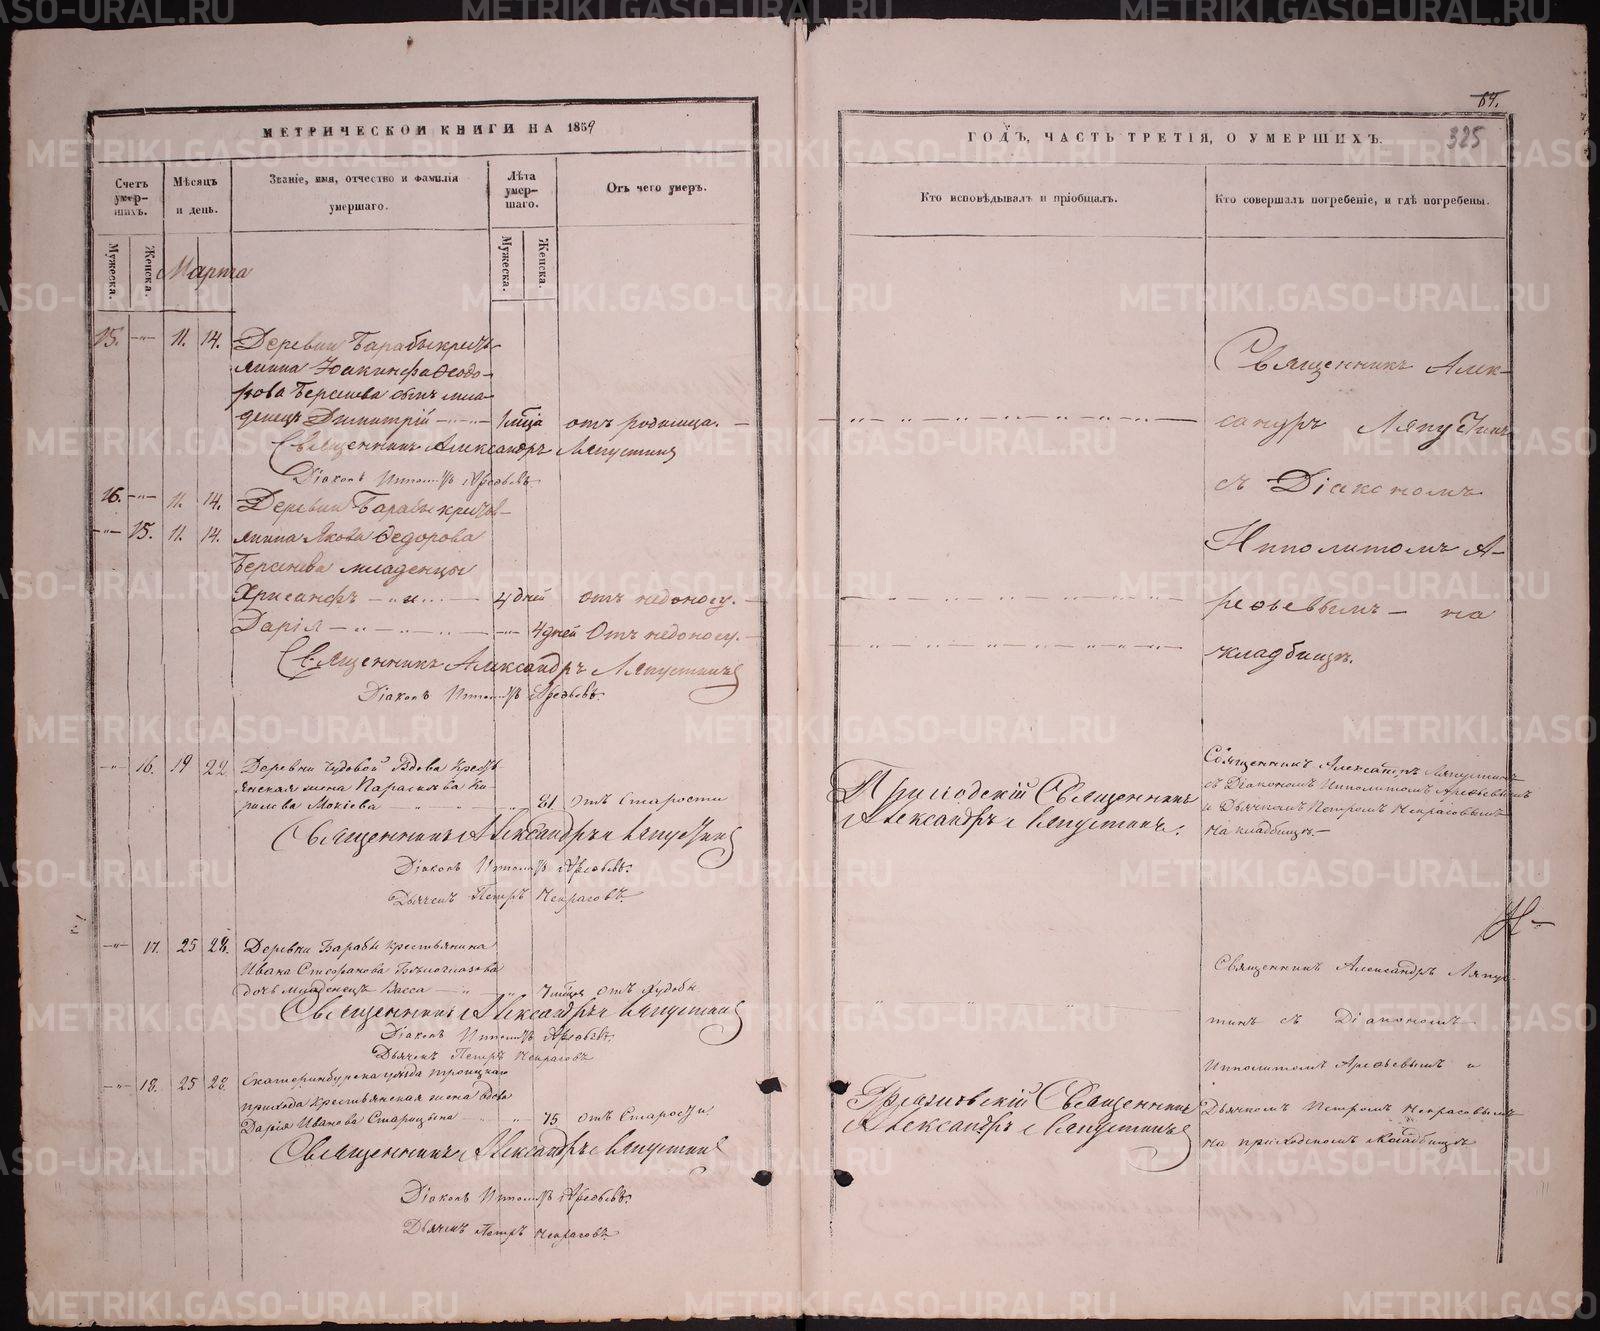 МЕТРИЧЕСКОЙ КНИГИ НА 1859
Счетъ умер-шихъ.
Мѣсяцъ и день.
Званіе, имя, отчество и фамилія умершаго.
Лѣта умер-шаго.
Отъ чего умеръ.
Мужеска.
Женска.
Мужеска.
Женска.
Марта
15. —"— 11. 14. Деревни Барабы кресть-
янина Іоакинфа Ѳеодо-
рова Берсенева сынъ мла-
денецъ Димитрій — 1 мѣца отъ родимца. —
Священникъ Александръ Ляпустинъ
Діаконъ Ипполитъ Арефьевъ
16. —"— 11. 14. Деревни Барабы кресть-
—"— 15. 11. 14. янина Якова Ѳедорова
Берсенева младенцы
Хрисанфъ — " — 4 дней отъ недоносу. —
Дарія — " — " — " — 4 дней Отъ недоносу. —
Священникъ Александръ Ляпустинъ
Діаконъ Ипполитъ Арефьевъ.
—"— 16. 19 22 Деревни Чудовой Вдова Кресть-
янская жена Параскева Ки-
рилова Мокіева 81 отъ Старости
Священникъ Александръ Ляпустинъ
Діаконъ Ипполитъ Арефьевъ.
Дьячекъ Петръ Некрасовъ.
—"— 17. 25 28. Деревни Барабы крестьянина
Ивана Стефанова Бѣлоглазова
дочь младенецъ Васса — " — 7 мѣцов отъ худобы
Священникъ Александръ Ляпустинъ
Діаконъ Ипполитъ Арефьевъ.
Дьячекъ Петръ Некрасовъ
—"— 18. 25 28. Екатеринбурска уѣзда Троицкаго
прихода крестьянская жена вдова
Дарія Иванова Старцына 75 отъ Старости
Священникъ Александръ Ляпустинъ
Діаконъ Ипполитъ Арефьевъ.
Дьячекъ Петръ Некрасовъ.
64.
325
ГОДЪ, ЧАСТЬ ТРЕТІЯ, О УМЕРШИХЪ.
Кто исповѣдывалъ и пріобщалъ.
Кто совершалъ погребеніе, и гдѣ погребены.
Священникъ Алек-
сандръ Ляпустинъ
съ Діакономъ
Ипполитомъ А-
рефьевымъ — на
кладбищѣ.
Приходскій Священникъ
Александръ Ляпустинъ.
Священникъ Александръ Ляпустинъ
съ Діакономъ Ипполитомъ Арефьевымъ
и Дьячкомъ Петромъ Некрасовымъ
на кладбищѣ. —
Священникъ Александръ Ляпус-
тинъ съ Діакономъ
Ипполитомъ Арефьевымъ и
Дьячкомъ Петромъ Некрасовымъ
на приходскомъ кладбищѣ
Священникъ
Александръ Ляпустинъ
METRIKI.GASO-URAL.RU